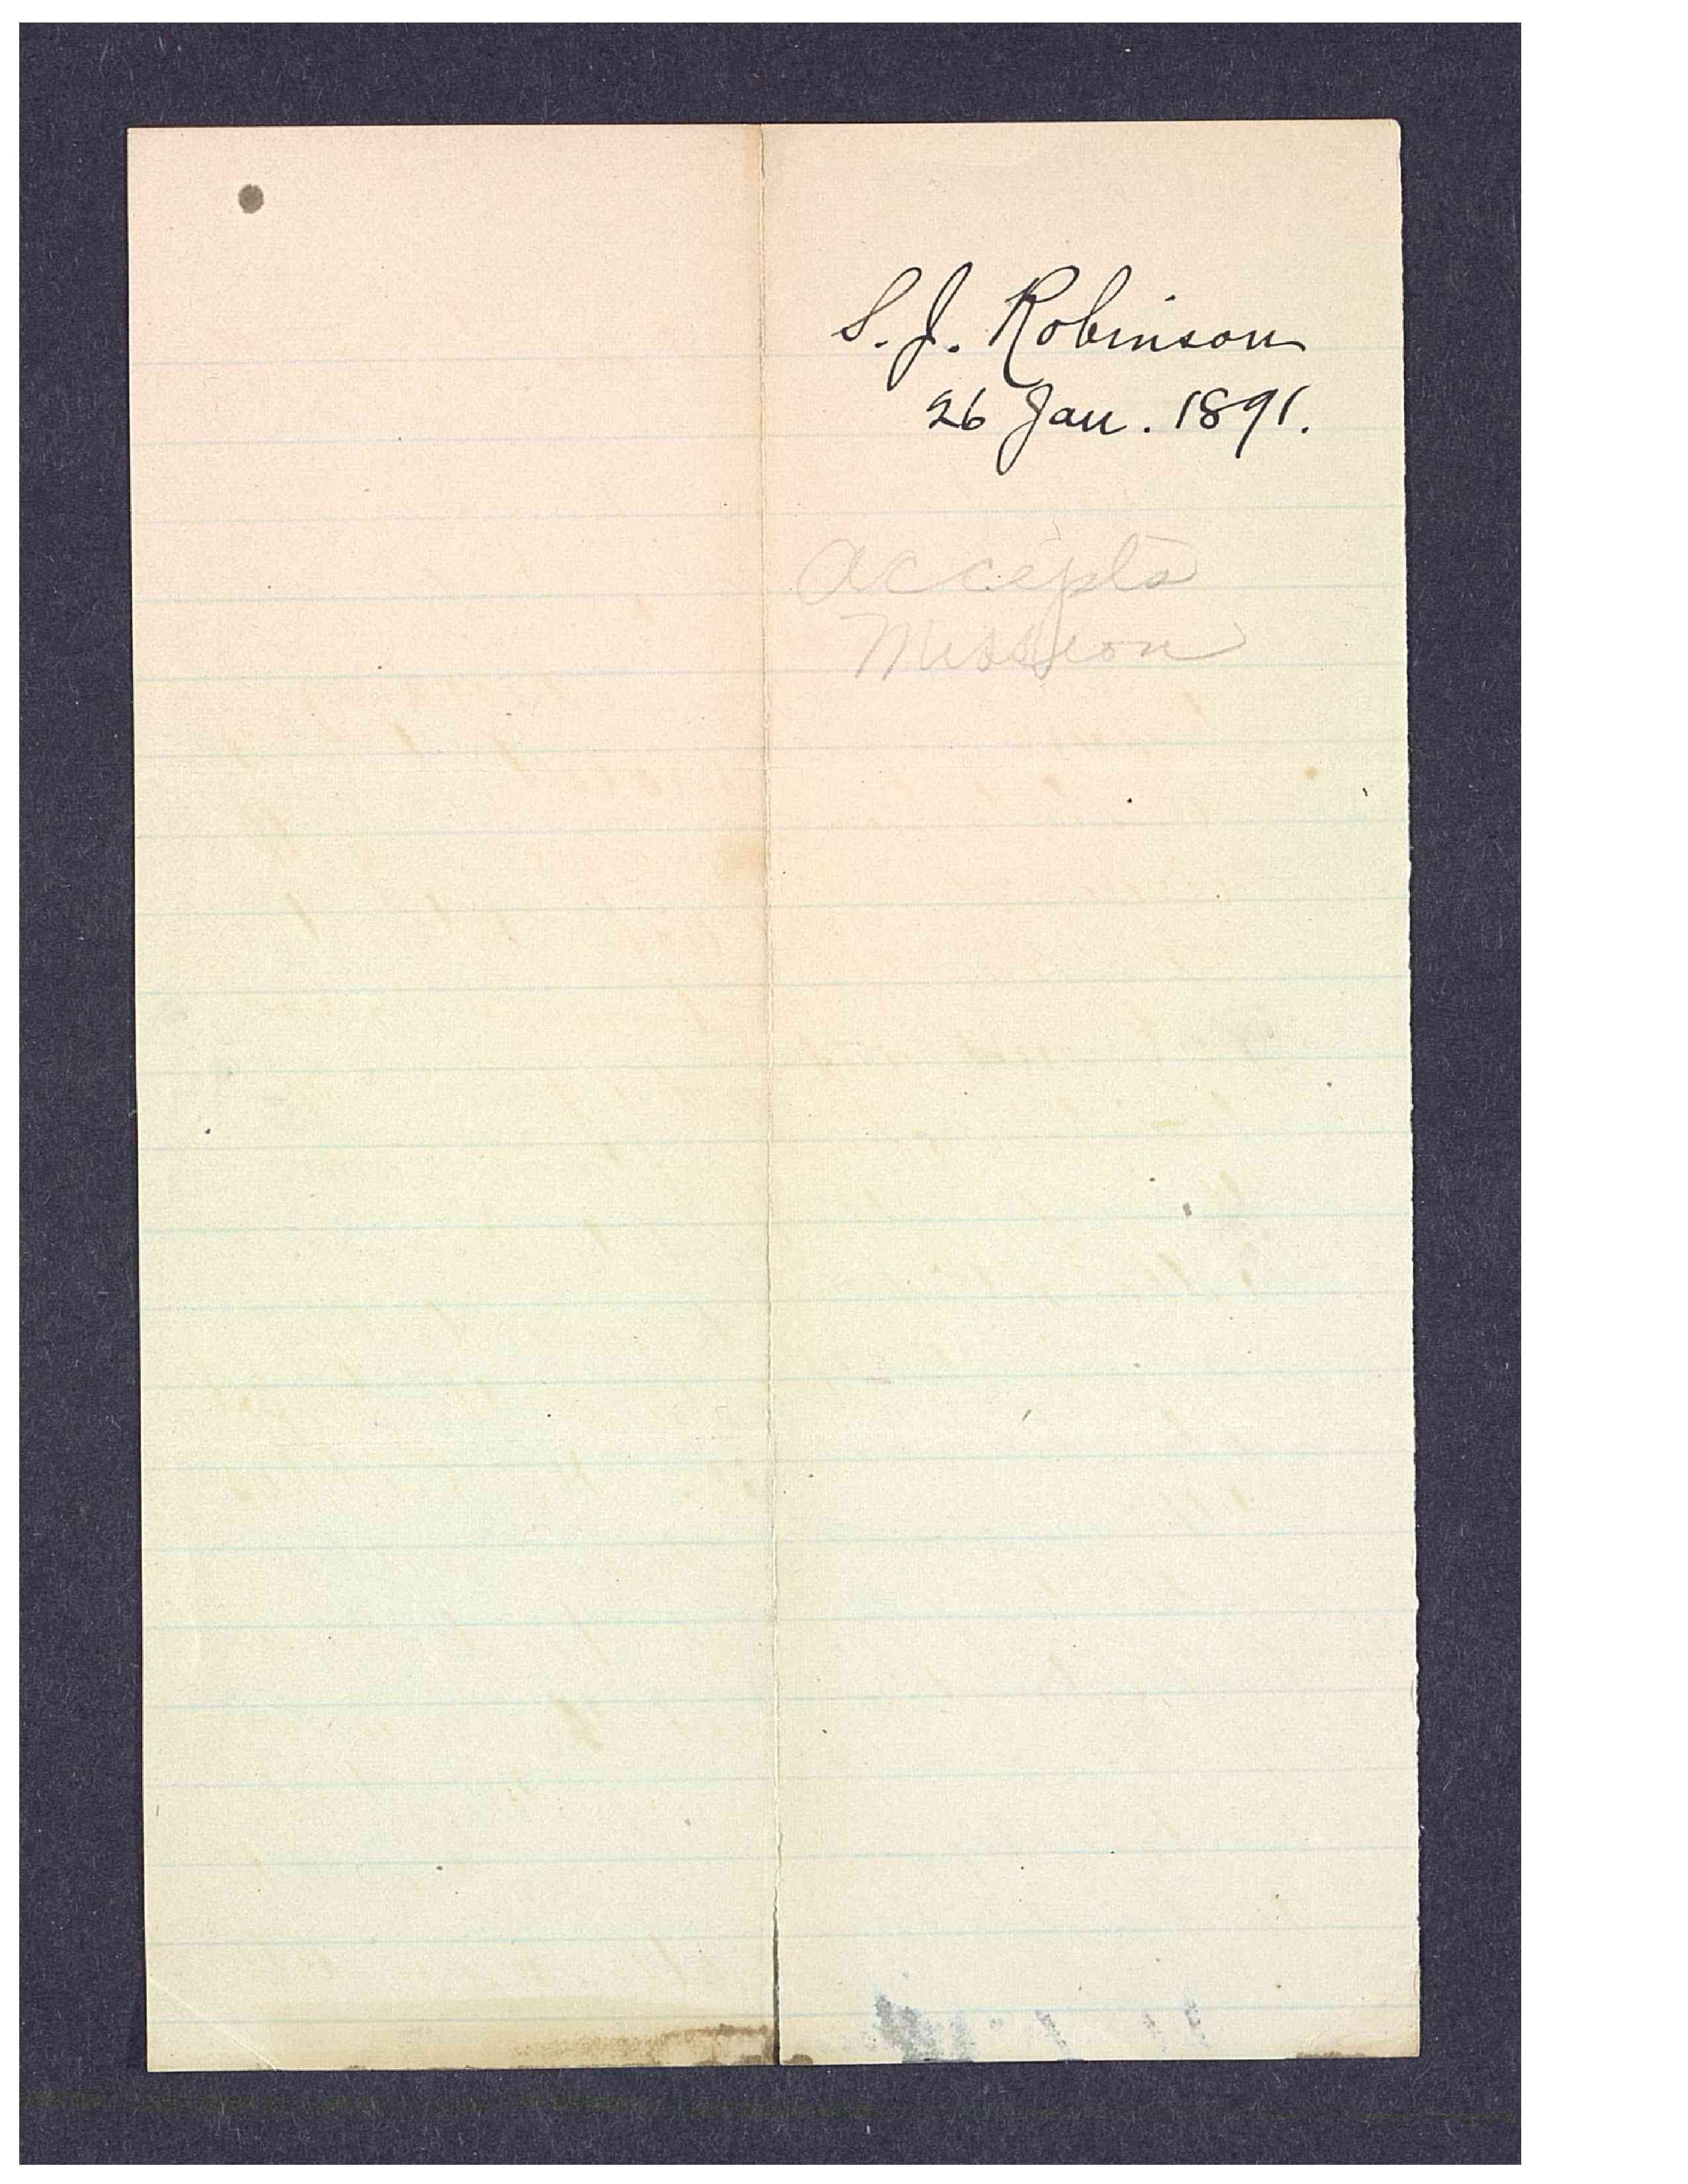 S. J. Robinson
26 Jan. 1891.
Accepts
Mission